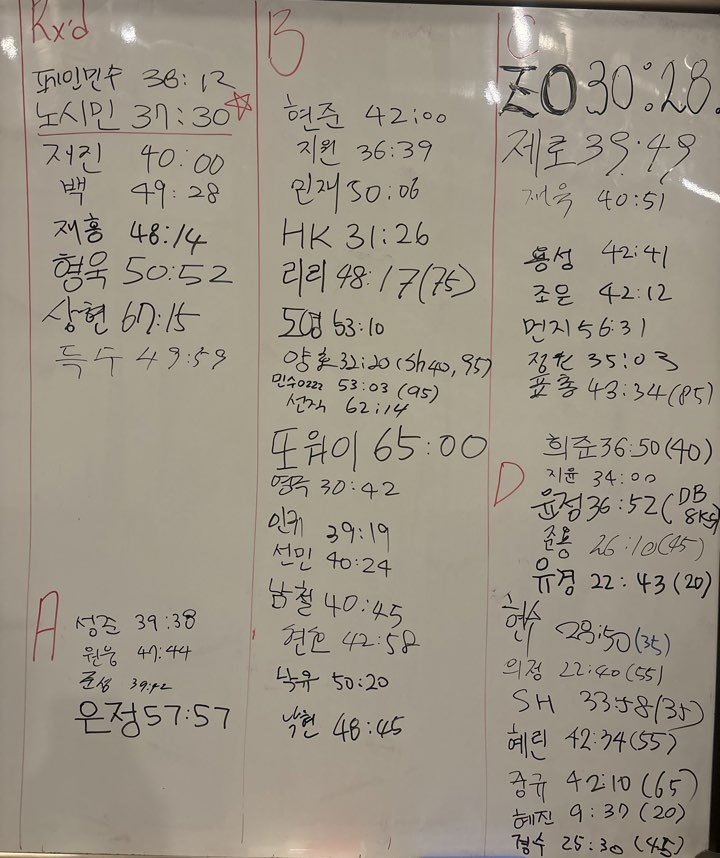 Rx'd
페인민수 38:12
노시민 37:30
재진 40:00
백 49:28
재홍 48:14
형욱 50:52
상현 67:15
득수 49:59
A
성준 39:38
원웅 47:44
준성 39:42
은정 57:57
B
현준 42:00
지원 36:39
민재 50:06
HK 31:26
리리 48:17(75)
도영 63:10
양호 32:20(sh40,95)
민수0222 53:03 (95)
선직 62:14
또유이 65:00
영국 30:42
인귀 39:19
선민 40:24
남철 40:45
현호 42:58
낙유 50:20
낙현 48:45
C
ZO 30:28.
제로 39:49
재욱 40:51
용성 42:41
조은 42:12
먼지 56:31
정원 35:03
표총 43:34(85)
희준 36:50(40)
D
지윤 34:00
윤정 36:52(DB 8KG)
준용 26:10(45)
유경 22:43(20)
현수 28:50(35)
의정 22:40(55)
SH 33:58(35)
혜린 42:34(55)
중규 42:10(65)
혜진 9:37(20)
경수 25:30(45)